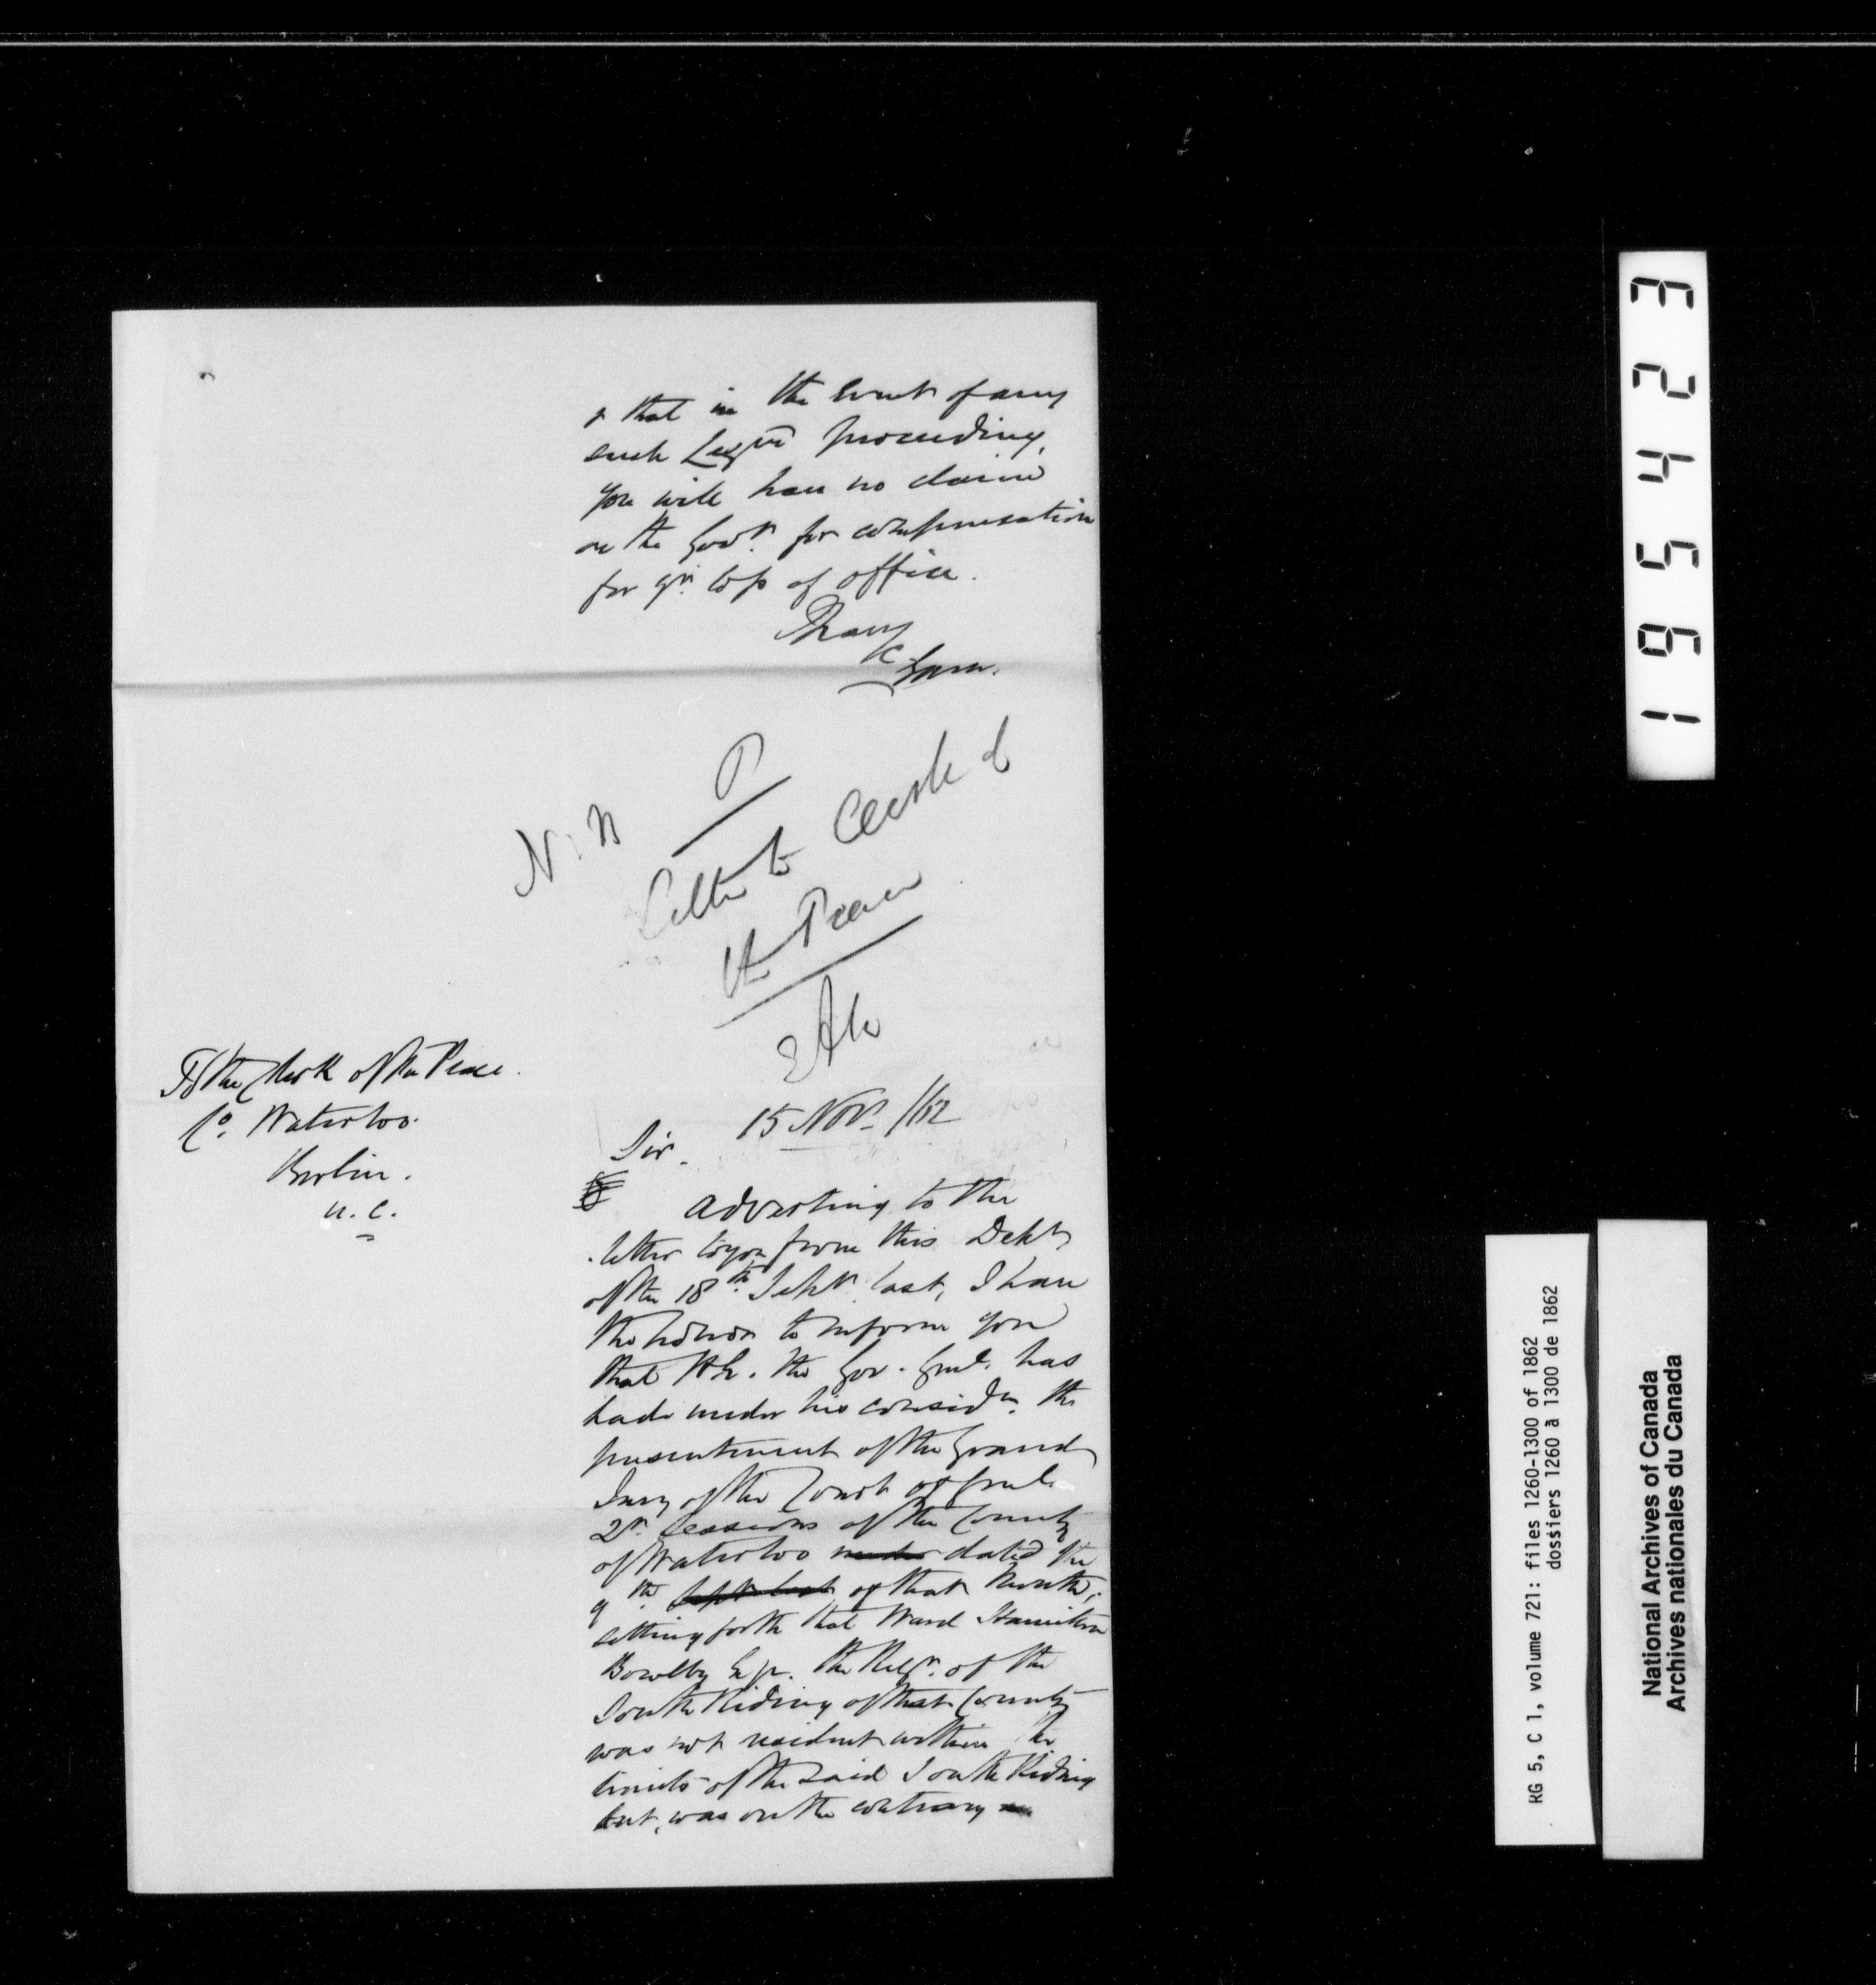 & that in the event of any
such Legn proceeding,
you will have no claim
on the Govt. for compensation
for yr. loss of office.
I have
&c
N.B
Letter to Clerk of
the Peace
EAM
To the Clerk of the Peace.
Co. Waterloo.
Berlin.
U.C.
15 Novr. /62
Sir.
Adverting to the
letter to you from this Dept
of the 18th. Sept. last, I have
the honor to inform you
that H.E. the Gov. Genl. has
had under his considn. the
presentment of the Grand
Jury of the Court of Genl.
Qr. Sessions of the County
of Waterloo under dated the
9th Sept last of that Month,
setting forth that Ward Hamilton
Bowlby Esqr. the Regr. of the
South Riding of that County
was not resident within the
limits of the said South Riding
but, was on the contrary
195423
RG 5, C 1, volume 721: files 1260-1300 of 1862
dossiers 1260 à 1300 de 1862
National Archives of Canada
Archives nationales du Canada